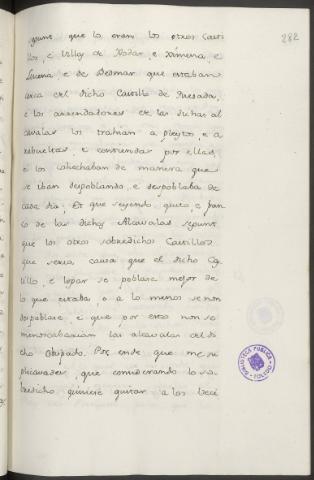 282
gunt que lo eran los otros Casti
llos, e Villas de Xodar, e Ximena, e
Lucena, e de Bedmar que estaban
cerca del dicho Castillo de Quesada,
e los arrendadores de las dichas al
cavalas los trahian a pleytos, e a
rebueltas, e contiendas por ellas,
e los cohechaban de manera que
se iban despoblando, e despoblaba de
cada dia, Et que seyendo quito, e fran
co de las dichas Alcavalas segunt
que los otros sobredichos Castillos
que seria causa que el dicho Cas
tillo, e logar se poblase mejor de
lo que estaba, o a lo menos se non
despoblare, e que por esto non se
menoscabarian las alcavalas del di
cho Obispado. Por ende que me su
plicavades, que considerando lo so
bredicho quisiese quitar a los veci
BIBLIOTECA PUBLICA
TOLEDO